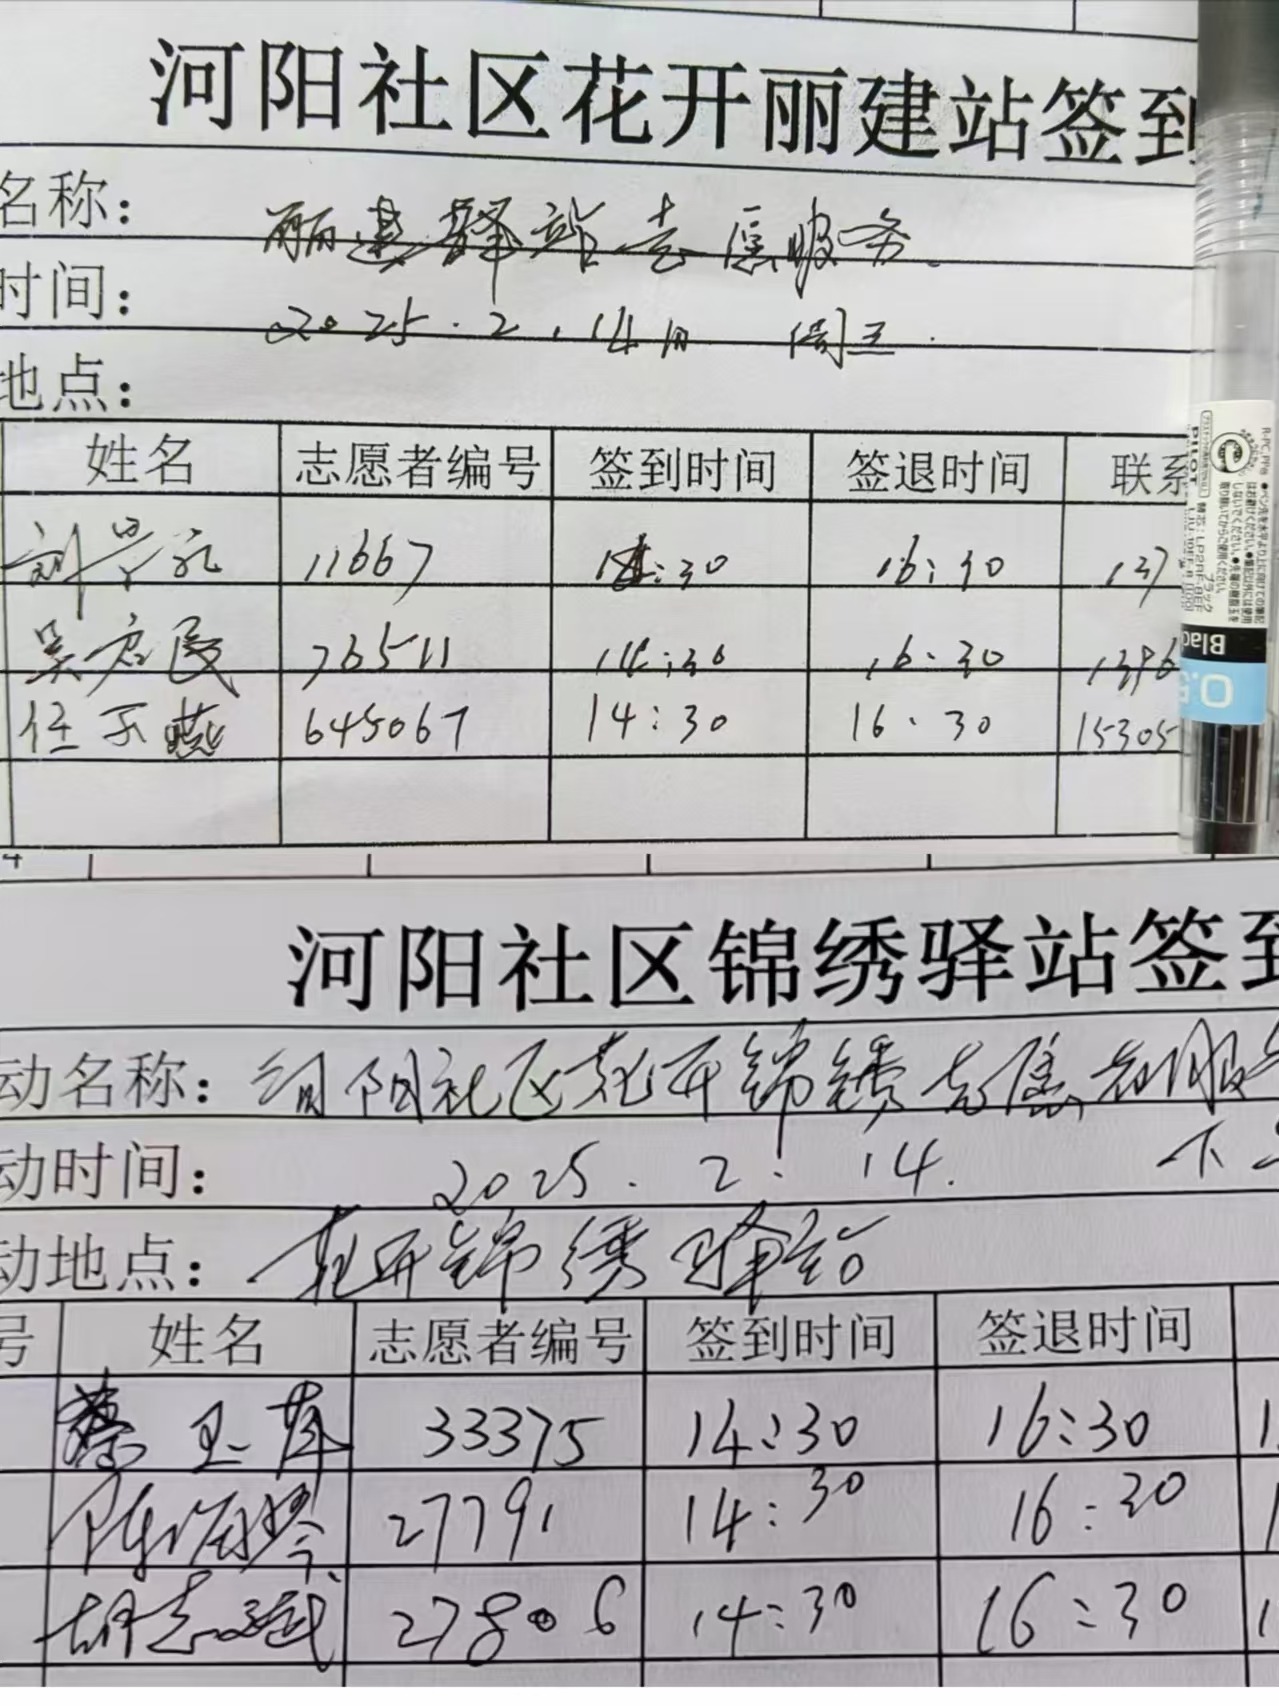 河阳社区花开丽建站签到
名称： 丽建驿站志愿服务.
时间： 2025.2.14日 周五.
地点：
姓名 志愿者编号 签到时间 签退时间 联系
11667 14:30 16:30 137
吴启民 76511 14:30 16:30 1396
任不燕 645067 14:30 16.30 15305
河阳社区锦绣驿站签到
动名称： 河阳社区花开锦绣志愿者服务
动时间： 2025. 2. 14. 下午
动地点： 花开锦绣驿站
号 姓名 志愿者编号 签到时间 签退时间
蔡玉萍 33375 14:30 16:30
陈海琴 27791 14:30 16:30
胡志斌 27806 14:30 16:30
PILOT
Black
0.5